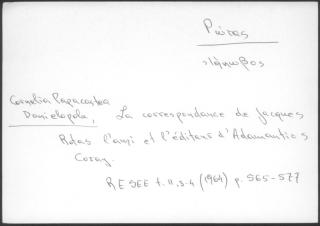 Ρώτας
Ιάκωβος
Cornelia Papacostea
Danielopolu, La correspondance de Jacques
Rotas l'ami et l'éditeur d'Adamantios
Coray.
RESEE t. II, 3-4 (1964) p. 565-577